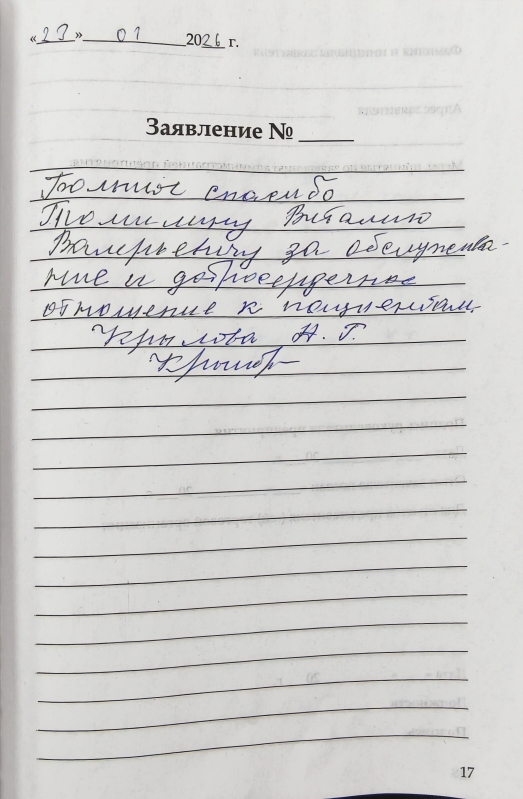 «23» 01 2026 г.
Заявление № ____
Большое спасибо
Томилину Виталию
Валерьевичу за обслужива-
ние и добросердечное
отношение к пациентам.
Крылова Н. Г.
17